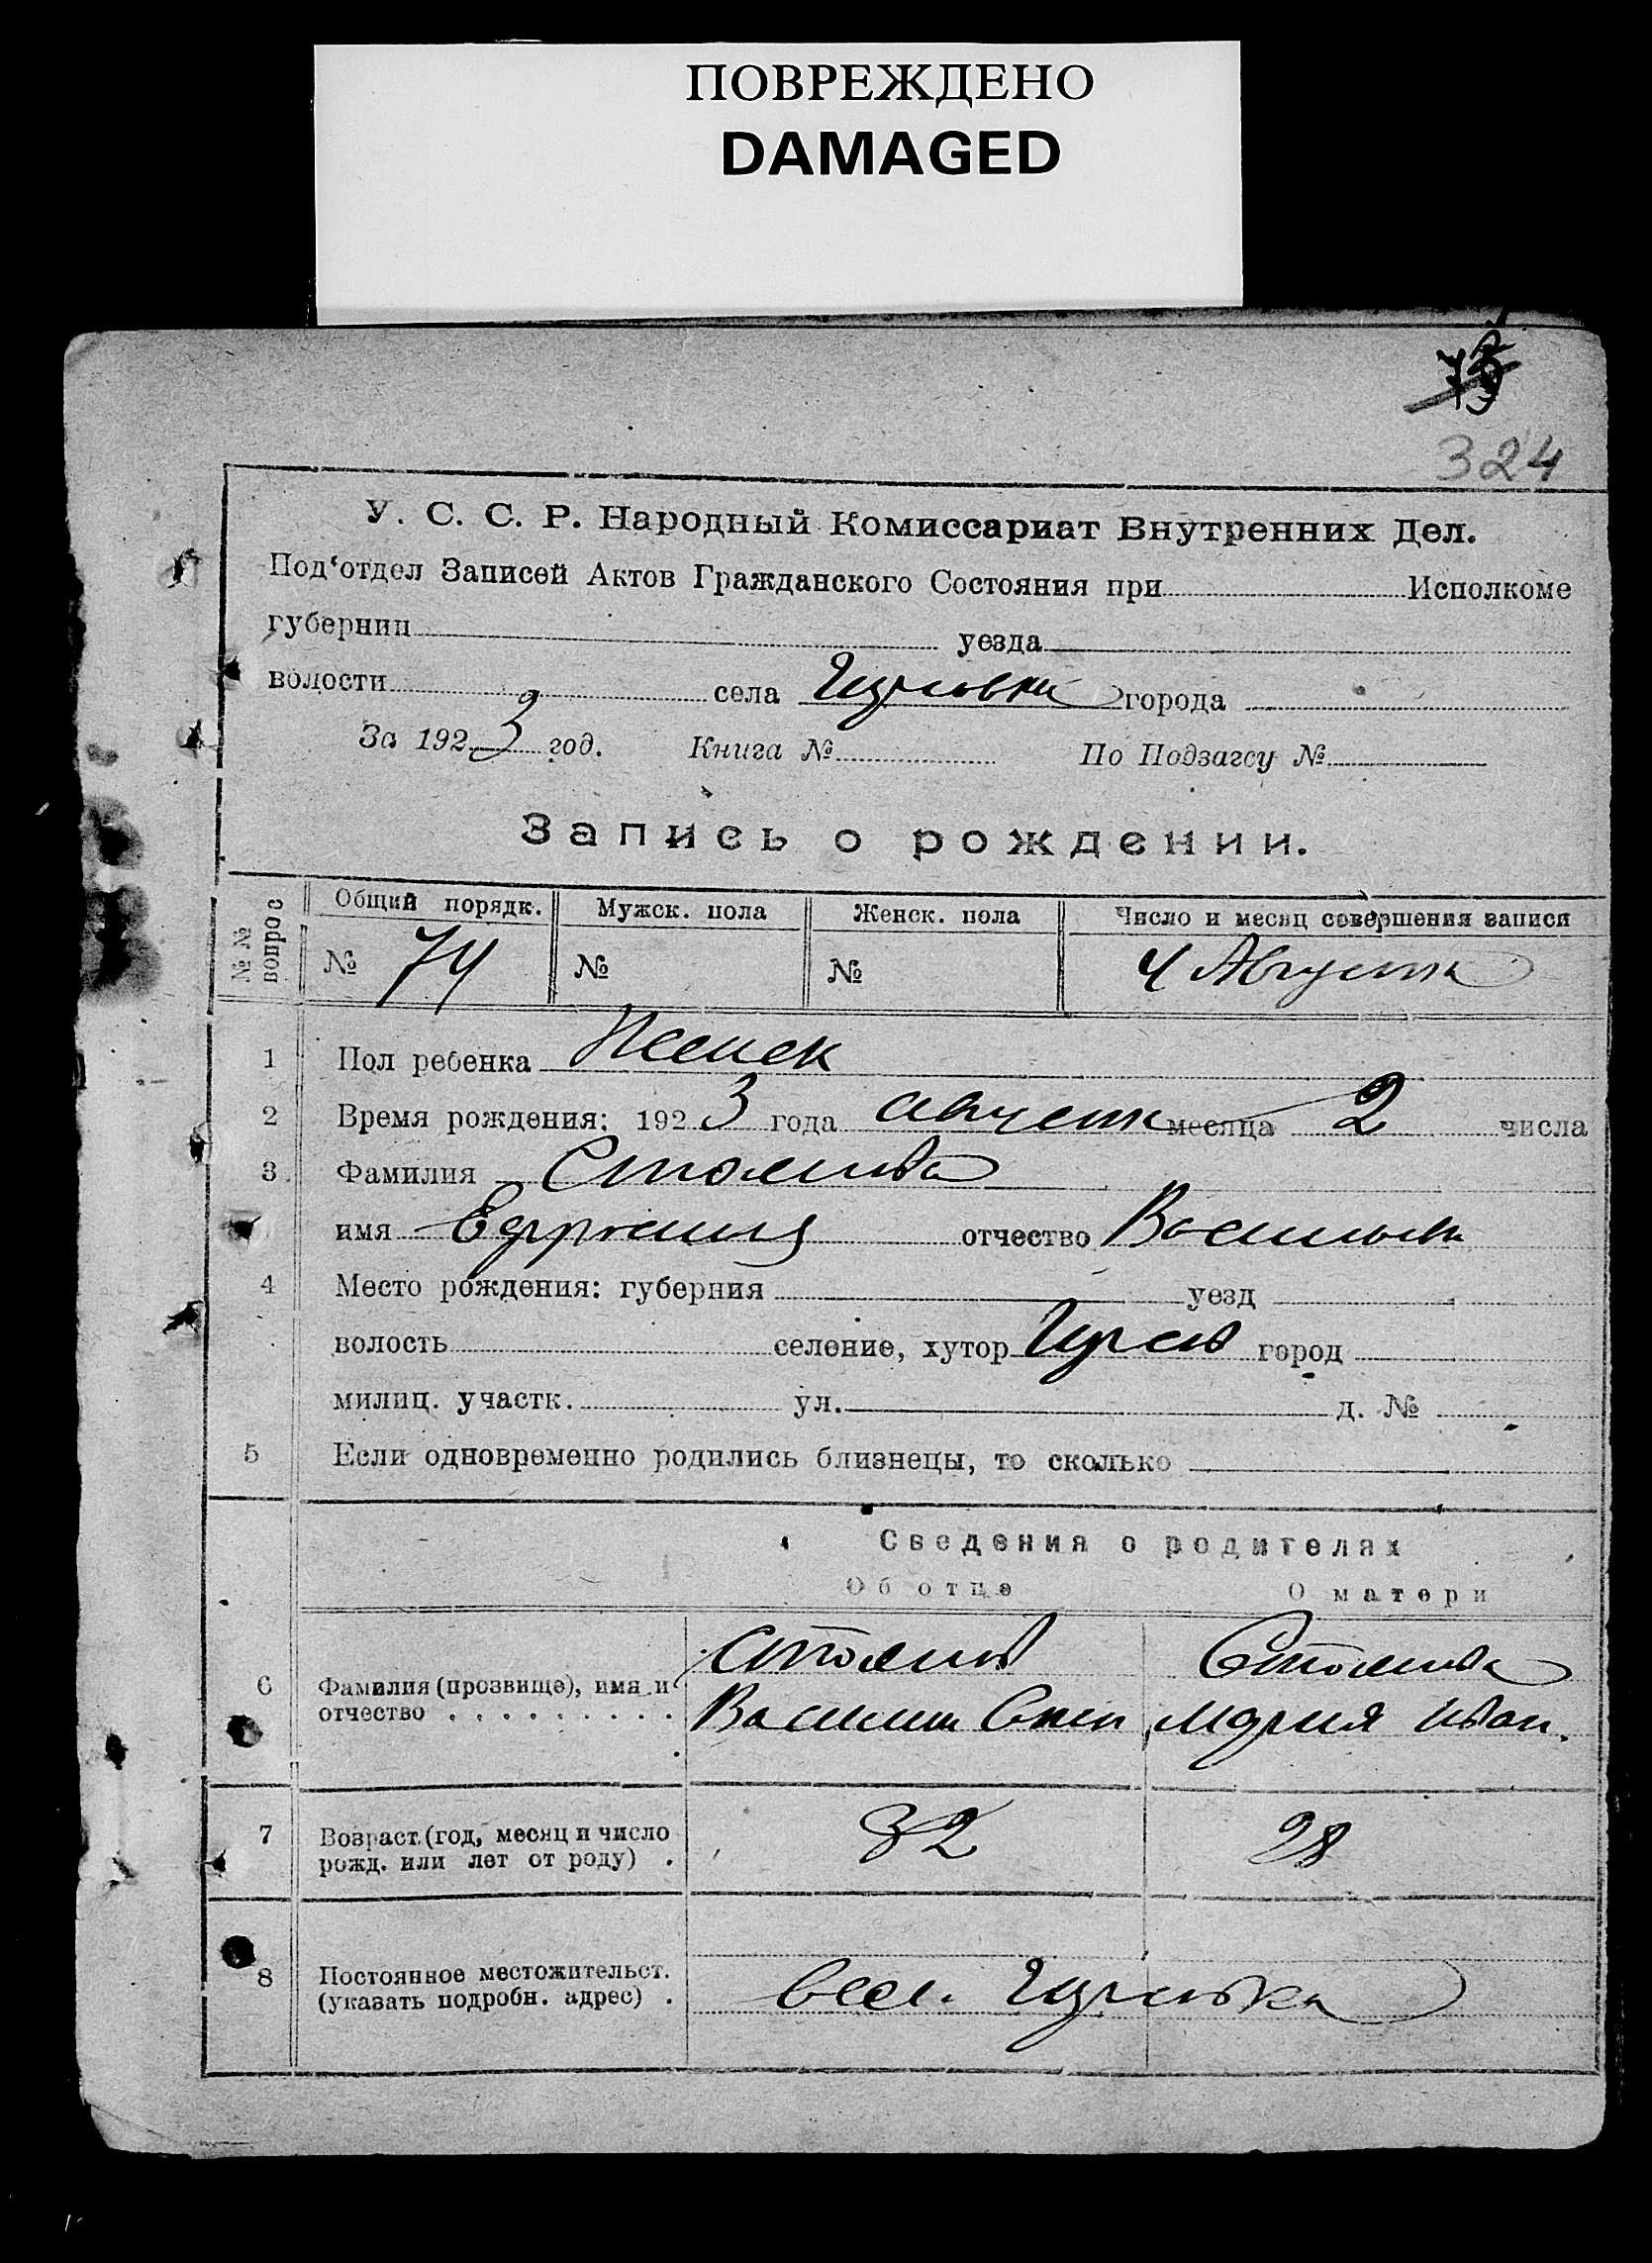 ПОВРЕЖДЕНО
DAMAGED
324
У. С. С. Р. Народный Комиссариат Внутренних Дел.
Под‘отдел Записей Актов Гражданского Состояния при Исполкоме
губернии уезда
волости села города
За 1923 год. Книга № По Подзагсу №
Запись о рождении.
№ № вопрос
Общий порядк. Мужск. пола Женск. пола Число и месяц совершения записи
№ 74 № № 4 Августа
1 Пол ребенка Женск
2 Время рождения: 1923 года август месяца 2 числа
3 Фамилия
имя Ефросиния отчество Василье
4 Место рождения: губерния уезд
волость селение, хутор город
милиц. участк. ул. д. №
5 Если одновременно родились близнецы, то сколько
Сведения о родителях
Об отце О матери
6 Фамилия (прозвище), имя и
отчество
Василий Мария Иван.
7 Возраст (год, месяц и число
рожд. или лет от роду) .
32 28
8 Постоянное местожительст.
(указать подробн. адрес) .